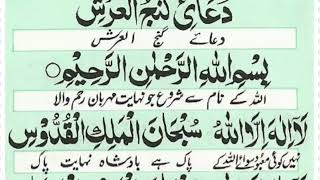 دعائے گنج العرش
دعائے گنج العرش
بِسْمِ اللهِ الرَّحْمٰنِ الرَّحِيْمِ
اللہ کے نام سے شروع جو نہایت مہربان رحم والا
لَآ اِلٰهَ اِلَّا اللهُ سُبْحَانَ الْمَلِكِ الْقُدُّوْسِ
نہیں کوئی معبود سوائے اللہ کے پاک ہے بادشاہ نہایت پاک